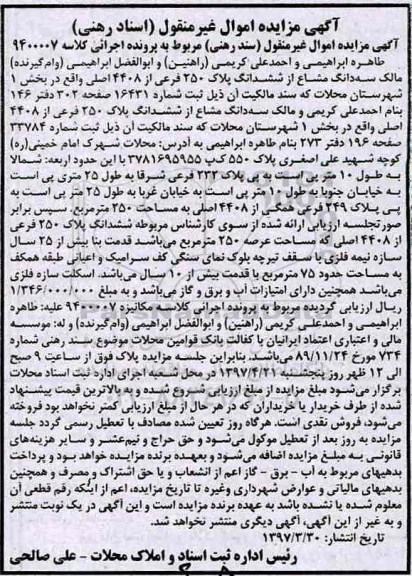 آگهی مزایده اموال غیرمنقول (اسناد رهنی)
آگهی مزایده اموال غیرمنقول (سند رهنی) مربوط به پرونده اجرائی کلاسه ۹۴۰۰۰۰۷
طاهره ابراهیمی و احمدعلی کریمی (راهنین) و ابوالفضل ابراهیمی (وام‌گیرنده)
مالک سه‌دانگ مشاع از ششدانگ پلاک ۲۵۰ فرعی از ۴۴۰۸ اصلی واقع در بخش ۱
شهرستان محلات که سند مالکیت آن ذیل ثبت شماره ۱۶۴۳۱ صفحه ۳۰۲ دفتر ۱۴۶
بنام احمدعلی کریمی و مالک سه‌دانگ مشاع از ششدانگ پلاک ۲۵۰ فرعی از ۴۴۰۸
اصلی واقع در بخش ۱ شهرستان محلات که سند مالکیت آن ذیل ثبت شماره ۳۳۷۸۴
صفحه ۱۹۶ دفتر ۲۷۳ بنام طاهره ابراهیمی به آدرس: محلات شهرک امام خمینی(ره)
کوچه شهید علی اصغری پلاک ۵۵۰ ک‌پ ۳۷۸۱۶۹۵۹۵۵ با این حدود اربعه: شمالا
به طول ۱۰ متر پی است به پی پلاک ۲۳۲ فرعی شرقا به طول ۲۵ متری پی است
به خیابان جنوبا به طول ۱۰ متر پی است به خیابان غربا به طول ۲۵ متر پی است به
پی پلاک ۲۴۹ فرعی همگی از ۴۴۰۸ اصلی به مساحت ۲۵۰ مترمربع. سپس برابر
صورتجلسه ارزیابی ارائه شده از سوی کارشناس مربوطه ششدانگ پلاک ۲۵۰ فرعی
از ۴۴۰۸ اصلی به مساحت عرصه ۲۵۰ مترمربع می‌باشد قدمت بنا بیش از ۲۵ سال
سازه نیمه فلزی با سقف تیرچه بلوک نمای سنگی کف سرامیک و اعیانی طبقه همکف
به مساحت حدود ۷۵ مترمربع با قدمت بیش از ۱۰ سال می‌باشد. اسکلت سازه فلزی
می‌باشد همچنین دارای امتیازات آب و برق و گاز می‌باشد و به مبلغ ۱/۳۴۶/۰۰۰/۰۰۰
ریال ارزیابی گردیده مربوط به پرونده اجرائی کلاسه مکانیزه ۹۴۰۰۰۰۷ علیه: طاهره
ابراهیمی و احمدعلی کریمی (راهنین) و ابوالفضل ابراهیمی (وام‌گیرنده) و له: موسسه
مالی و اعتباری اعتماد ایرانیان با کفالت بانک قوامین محلات موضوع سند رهنی شماره
۷۳۴ مورخ ۸۹/۱۱/۲۴ می‌باشند. بنابراین جلسه مزایده پلاک فوق از ساعت ۹ صبح
الی ۱۲ ظهر روز پنجشنبه ۱۳۹۷/۴/۲۱ در محل شعبه اجرای اداره ثبت اسناد محلات
برگزار می‌شود مبلغ مزایده از مبلغ ارزیابی شروع شده و به بالاترین قیمت پیشنهاد
شده از طرف خریدار یا خریداران که در هر حال از مبلغ ارزیابی کمتر نخواهد بود فروخته
می‌شود، فروش نقدی است. هرگاه روز تعیین شده مصادف با تعطیل رسمی گردد جلسه
مزایده به روز بعد از تعطیل موکول می‌شود و حق حراج و نیم‌عشر و سایر هزینه‌های
قانونی به مبلغ مزایده اضافه می‌شود و بعهده برنده مزایده خواهد بود و پرداخت
بدهیهای مربوط به آب - برق - گاز اعم از انشعاب و یا حق اشتراک و مصرف و همچنین
بدهیهای مالیاتی و عوارض شهرداری وغیره تا تاریخ مزایده، اعم از اینکه رقم قطعی آن
معلوم شده یا نشده باشد به عهده برنده مزایده است و این آگهی در یک نوبت منتشر
و به غیر از این آگهی، آگهی دیگری منتشر نخواهد شد.
تاریخ انتشار: ۱۳۹۷/۳/۳۰
رئیس اداره ثبت اسناد و املاک محلات - علی صالحی